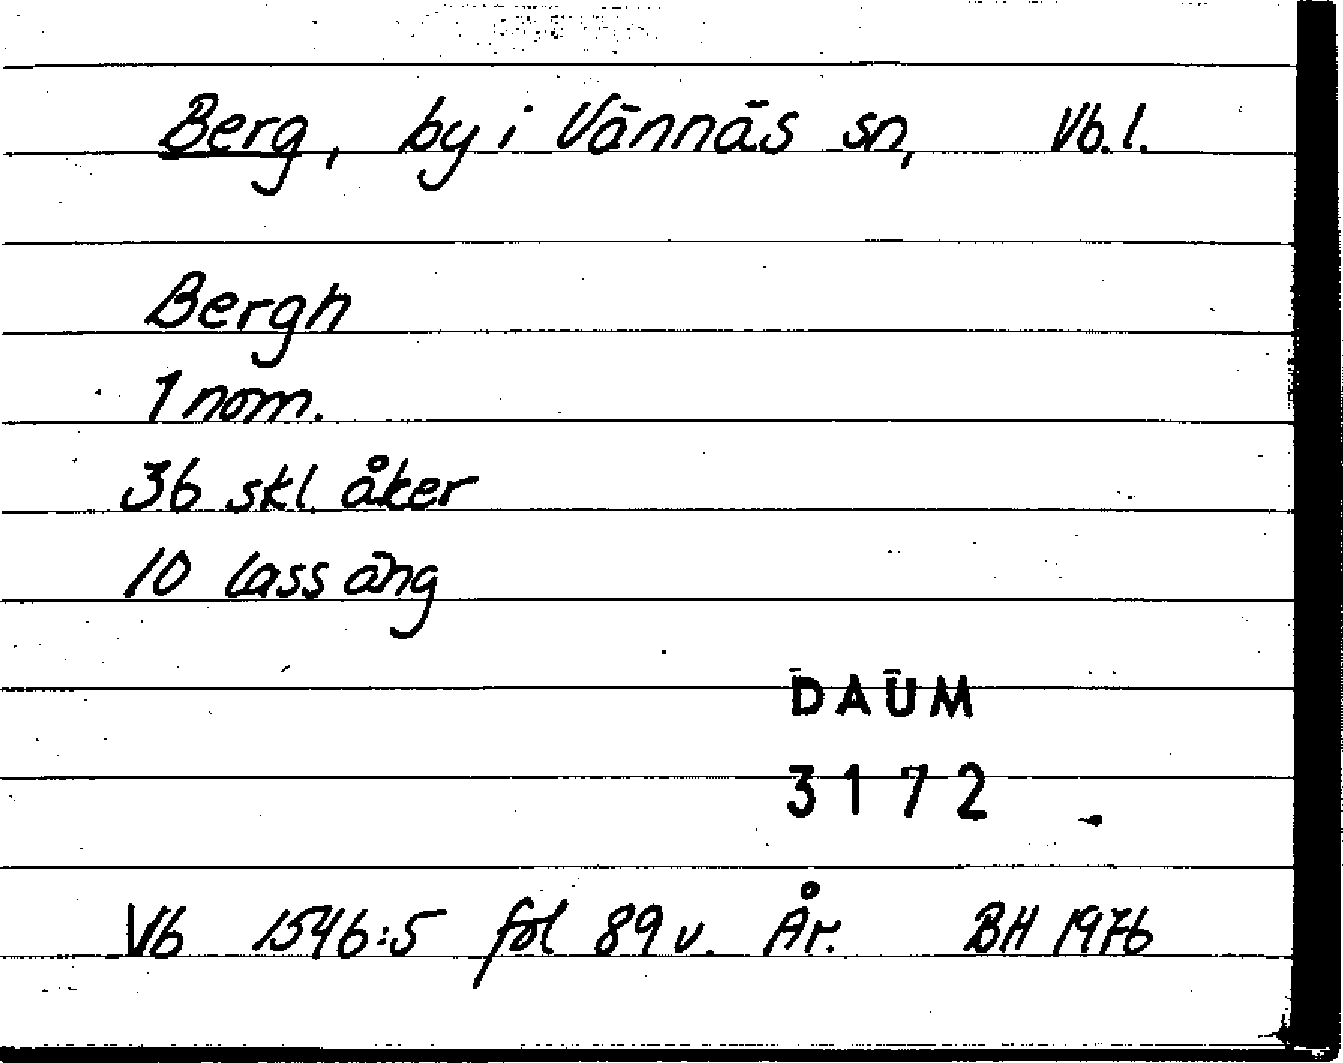 Berg, by i Vännäs sn, Vb.l.
Bergh
1 nom.
36 skl. åker
10 lass äng
DAUM
3172
Vb 1546:5 fol 89 v. År. BH 1976